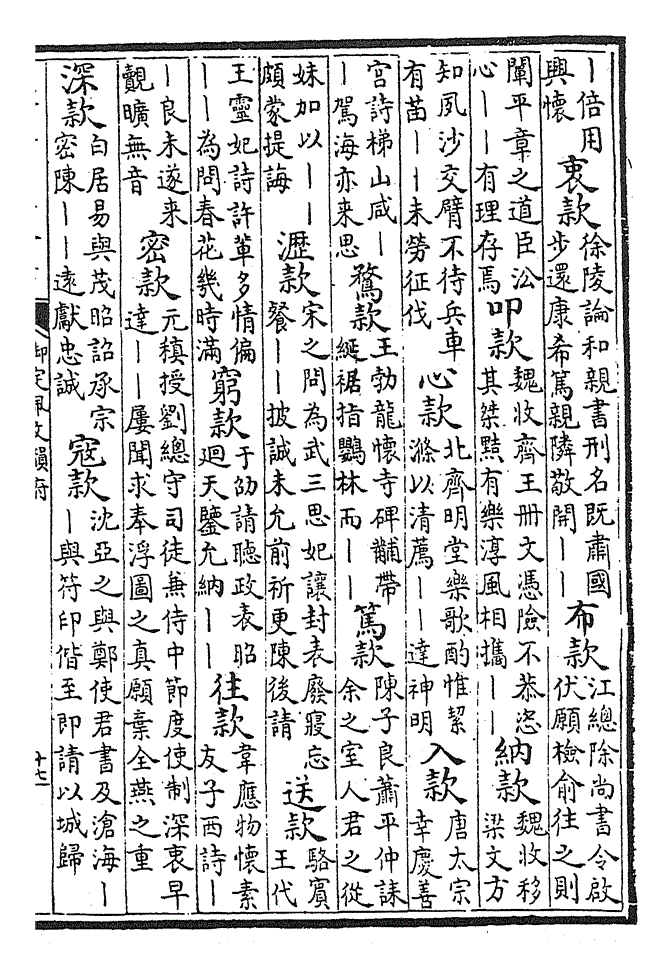 丨倍用興懷 衷款 徐陵論和親書刑名既肅國步還康希篤親隣敬開丨丨 布款 江總除尚書令啟伏願檢俞往之則
闡平章之道臣㳂心丨丨有理存焉 叩款 魏收齊王冊文憑險不恭恣其桀黠有樂淳風相攜丨丨 納款 魏收移梁文方
知夙沙交臂不待兵車有苗丨丨未勞征伐 心款 北齊明堂樂歌酌惟絜滌以清薦丨丨達神明 入款 唐太宗幸慶善
宮詩梯山咸丨丨駕海亦来思 鶩款 王勃龍懷寺碑黼帶綖裾指鸚林而丨丨 篤款 陳子良蕭平仲誄余之室人君之從
妹加以丨丨頗蒙提誨 瀝款 宋之問為武三思妃讓封表廢寢忘餐丨丨披誠未允前祈更陳後請 送款 駱賓王代
王靈妃詩許輩多情偏丨丨為問春花幾時滿 窮款 于邵請聽政表昭迴天鑒允納丨丨 往款 韋應物懷素友子西詩丨
丨良未遂来覿曠無音 密款 元稹授劉總守司徒兼侍中節度使制深衷早達丨丨屢聞求奉浮圖之真願棄全燕之重
深款 白居易與茂昭詔承宗密陳丨丨遠獻忠誠 寇款 沈亞之與鄭使君書及滄海丨丨與符印偕至即請以城歸
御定佩文韻府
十七